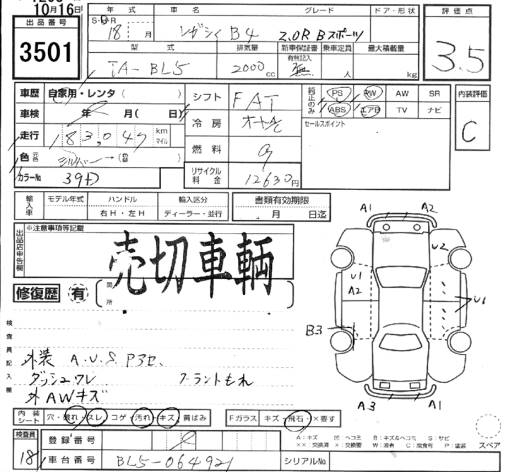 10月16日
出品番号
3501
年式 車名 グレード ドア・形状
S・H・R 18 月 レガシィ B4 2.0R Bスポーツ
型式 排気量 新車保証書 有無記入 乗車定員 最大積載量
TA-BL5 2000 cc 人 kg
評価点
3.5
車歴 自家用・レンタ( )
車検 年 月( 日)
走行 183,047 km マイル
色 元色 シルバー
カラーNo 39D
シフト FAT
冷房 オートAC
燃料
リサイクル料金 12630円
純正のみ PS PW AW SR
ABS エアB TV ナビ
セールスポイント
内装評価
C
輸入車 モデル年式 ハンドル 輸入区分
右H・左H ディーラー・並行
書類有効期限
月 日迄
出品店申告欄
※注意事項等記載
売切車輌
修復歴 有 箇所
検査員記入欄
外装 A.U.S P3セ.
ダッシュワレ フロントもれ
外AWキズ
内装シート 穴・破れ・スレ・コゲ・汚れ・キズ・黄ばみ
Fガラス キズ・飛石・×要す
検査員
18
登録番号
車台番号 BL5-064921
シリアルNo
A1 A2
U2
U1
A2
U1
B3
A3 A1
A:キズ U:ヘコミ B:キズ&ヘコミ S:サビ
スペア